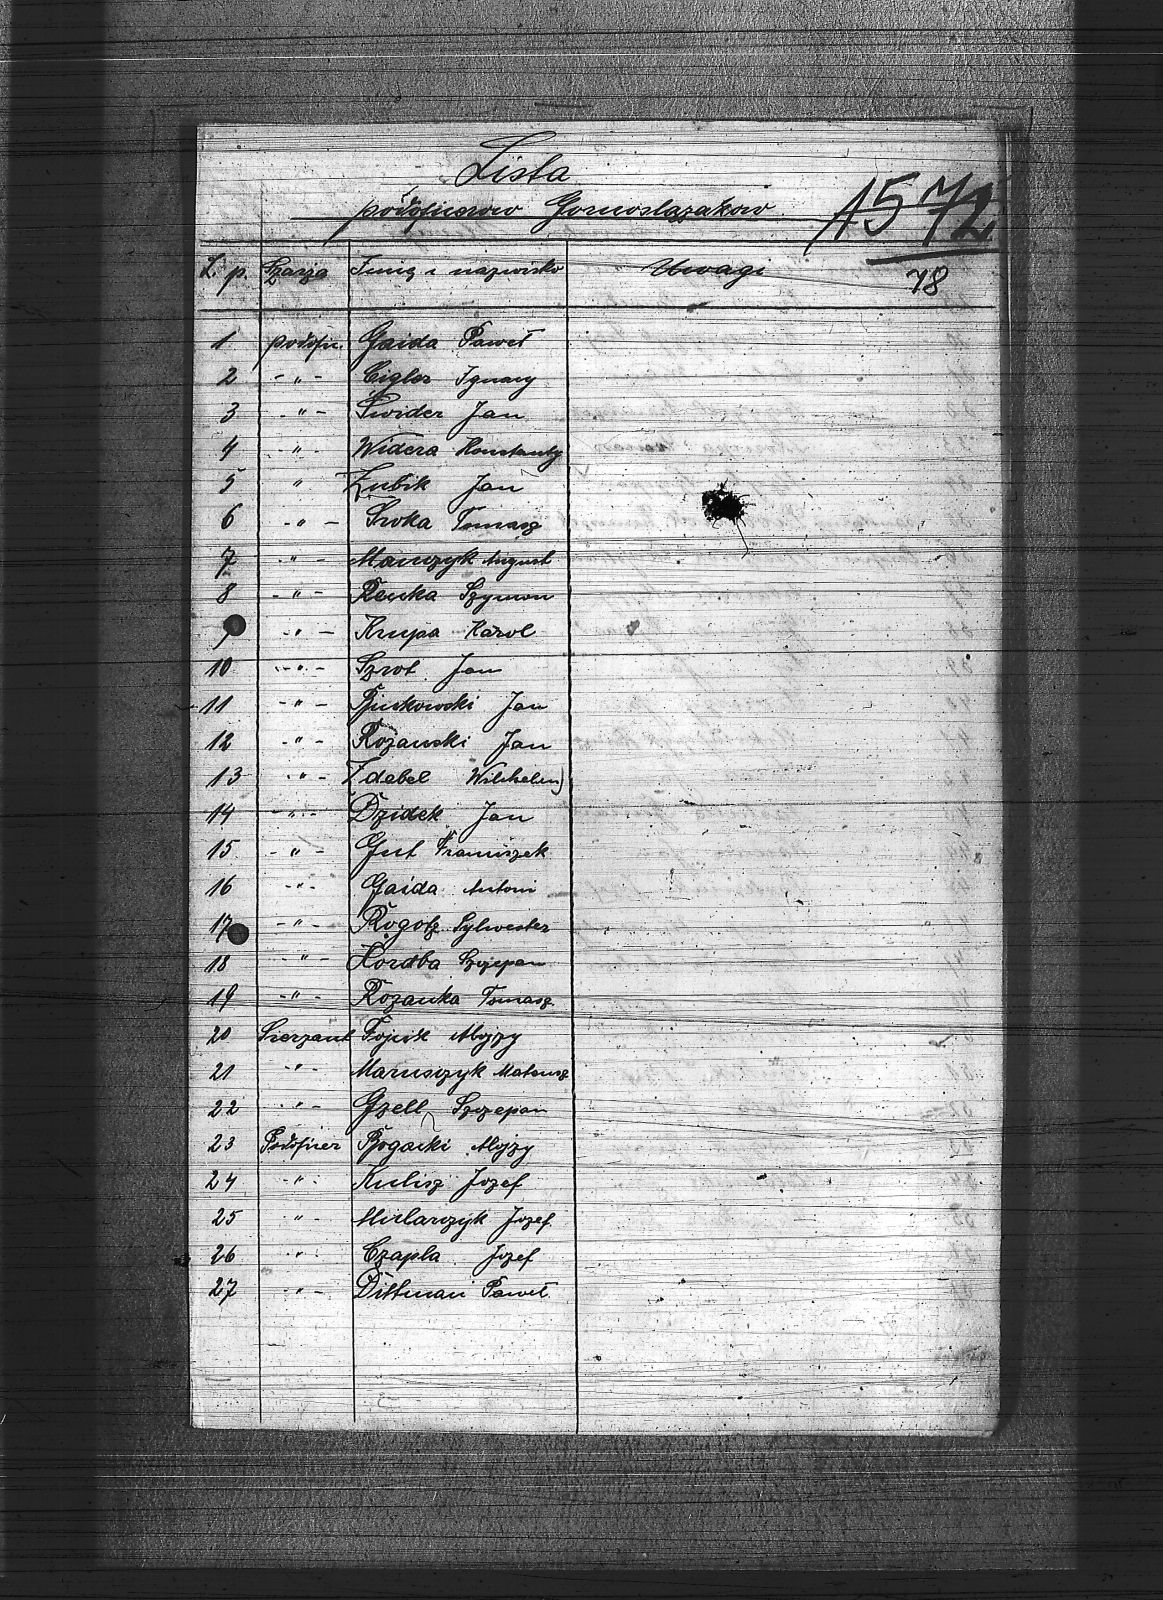 Lista
podoficerow Gornoslązakow
1572
78
L. p. Szarża Imię i nazwisko Uwagi
1 podofic. Gaida Paweł
2 -"- Cigler Ignacy
3 -"- Świder Jan
4 -"- Widera Konstanty
5 " Zubik Jan
6 -"- Sroka Tomasz
7 -"- Manczyk August
8 -"- Renka Szymon
9 -"- Krupa Karol
10 -"- Szrot Jan
11 -"- Jan
12 -"- Rozanski Jan
13 -"- Zdebel Wilchelm
14 -"- Dzidek Jan
15 -"- Gut Franciszek
16 -"- Gaida Antoni
17 -"- Rogotz Sylwester
18 -"- Kordba Szczepan
19 -"- Rozanka Tomasz
20 Sierżant Fojcik Alojzy
21 -"- Marusczyk Mateusz
22 -"- Gzell Szczepan
23 Podoficer Bogacki Alojzy
24 -"- Kulisz Jozef
25 -"- Mielarczyk Jozef
26 -"- Czapla Jozef
27 -"- Dittman Paweł